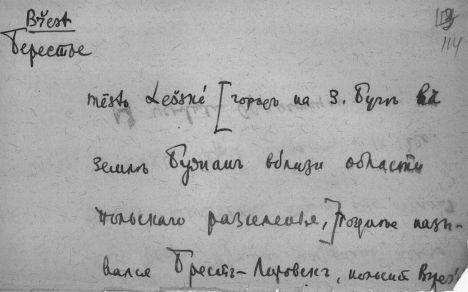 Břest
114
Берестье
město Lešské [городъ на З. Бугъ на
земляхъ Бужанъ вблизи области
польскаго разселенья,] позднѣе назы-
вался Брестъ-Литовскъ, польский Brześć